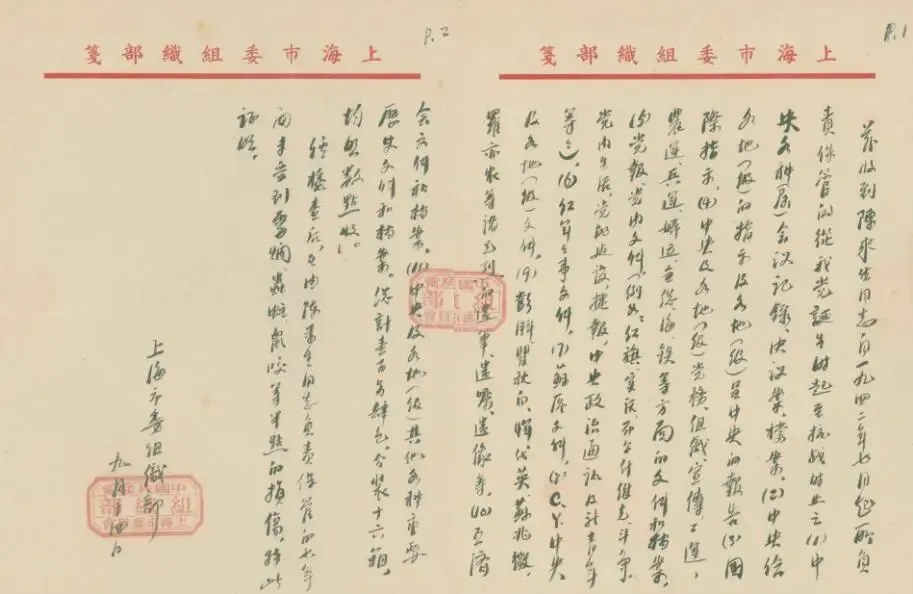 P.1
上海市委組織部箋
茲收到陳來生同志自一九四二年七月起所負
責保管的從我党誕生时起至抗战时止之(1)中
央各种会议記錄、决议案、檔案,(2)中央给
各地(级)的指示及各地(级)呈中央的報告(3)國
際指示,(4)中央及各地(级)党務、组織、宣傳、工運、
農運、兵運、婦运、全总、海、鉄等方面的文件和档案。
(5)党報、党内文件(例如、红旗、实话、布尔什维克、斗争、
党内生活、党的建设、捷報、中央政治通訊及青年
等等),(6)红軍軍事文件,(7)蘇區文件,(8)C.Y.中央
及各地(级)文件,(9)彭湃、瞿秋白、惲代英、蘇兆徵、
羅亦农等诸先烈的遗筆、遗嘱、遗像等,(10)互濟
P.2
上海市委組織部箋
会文件和档案,(11)中央及各地(级)其他各种重要
歷史文件和档案。总計壹百零肆包,分装十六箱,
均照数點收。
经檢查后,陳來生同志負責保管的七年
间未受到霉爛、蟲蛀、鼠咬等半點的損傷,特此
证明。
上海市委组織部
九月十四日
組織部
組織部